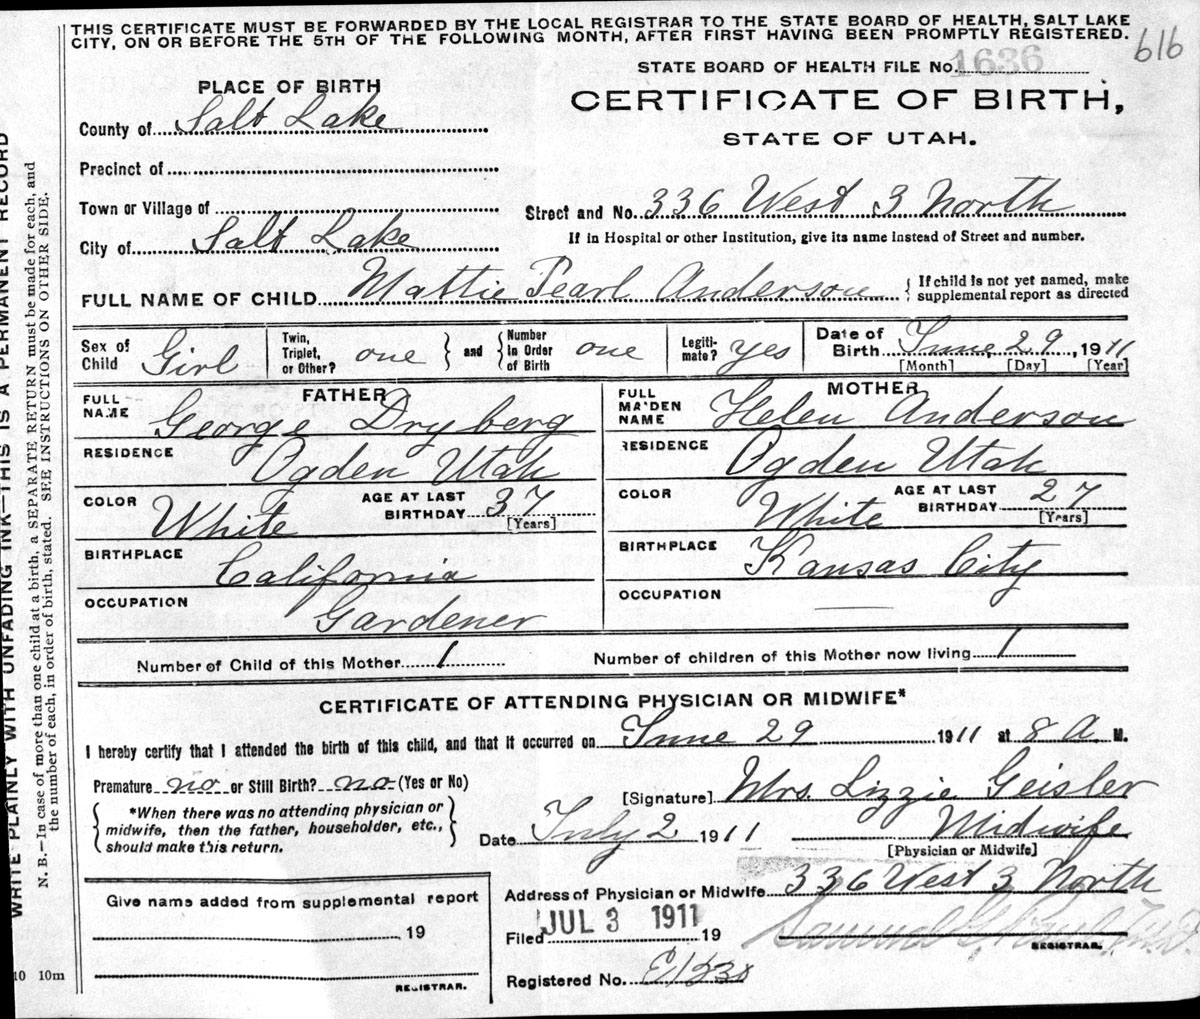 THIS CERTIFICATE MUST BE FORWARDED BY THE LOCAL REGISTRAR TO THE STATE BOARD OF HEALTH, SALT LAKE
CITY, ON OR BEFORE THE 5TH OF THE FOLLOWING MONTH, AFTER FIRST HAVING BEEN PROMPTLY REGISTERED.
616
STATE BOARD OF HEALTH FILE No. 1636
PLACE OF BIRTH
CERTIFICATE OF BIRTH,
STATE OF UTAH.
County of Salt Lake
Precinct of
Town or Village of
Street and No. 336 West 3 North
City of Salt Lake
If in Hospital or other Institution, give its name instead of Street and number.
FULL NAME OF CHILD Mattie Pearl Anderson { If child is not yet named, make
supplemental report as directed
Sex of Child Girl
Twin, Triplet, or Other? one } and { Number in Order of Birth one
Legiti-mate? yes
Date of Birth June 29, 1911
[Month] [Day] [Year]
FATHER
FULL NAME George Dryberg
RESIDENCE Ogden Utah
COLOR White AGE AT LAST BIRTHDAY 37 [Years]
BIRTHPLACE California
OCCUPATION Gardener
MOTHER
FULL MAIDEN NAME Helen Anderson
RESIDENCE Ogden Utah
COLOR White AGE AT LAST BIRTHDAY 27 [Years]
BIRTHPLACE Kansas City
OCCUPATION
Number of Child of this Mother 1 Number of children of this Mother now living 1
CERTIFICATE OF ATTENDING PHYSICIAN OR MIDWIFE*
I hereby certify that I attended the birth of this child, and that it occurred on June 29 1911 at 8 A M.
Premature no or Still Birth? no (Yes or No)
{ *When there was no attending physician or
midwife, then the father, householder, etc., }
should make this return.
[Signature] Mrs. Lizzie Geisler
Date July 2 1911 Midwife
[Physician or Midwife]
Give name added from supplemental report
19
REGISTRAR.
Address of Physician or Midwife 336 West 3 North
Filed JUL 3 1911 19
Samuel G.
REGISTRAR.
Registered No.
WRITE PLAINLY WITH UNFADING INK—THIS IS A PERMANENT RECORD
N. B.—In case of more than one child at a birth, a SEPARATE RETURN must be made for each, and
the number of each, in order of birth, stated. SEE INSTRUCTIONS ON OTHER SIDE.
10 10m